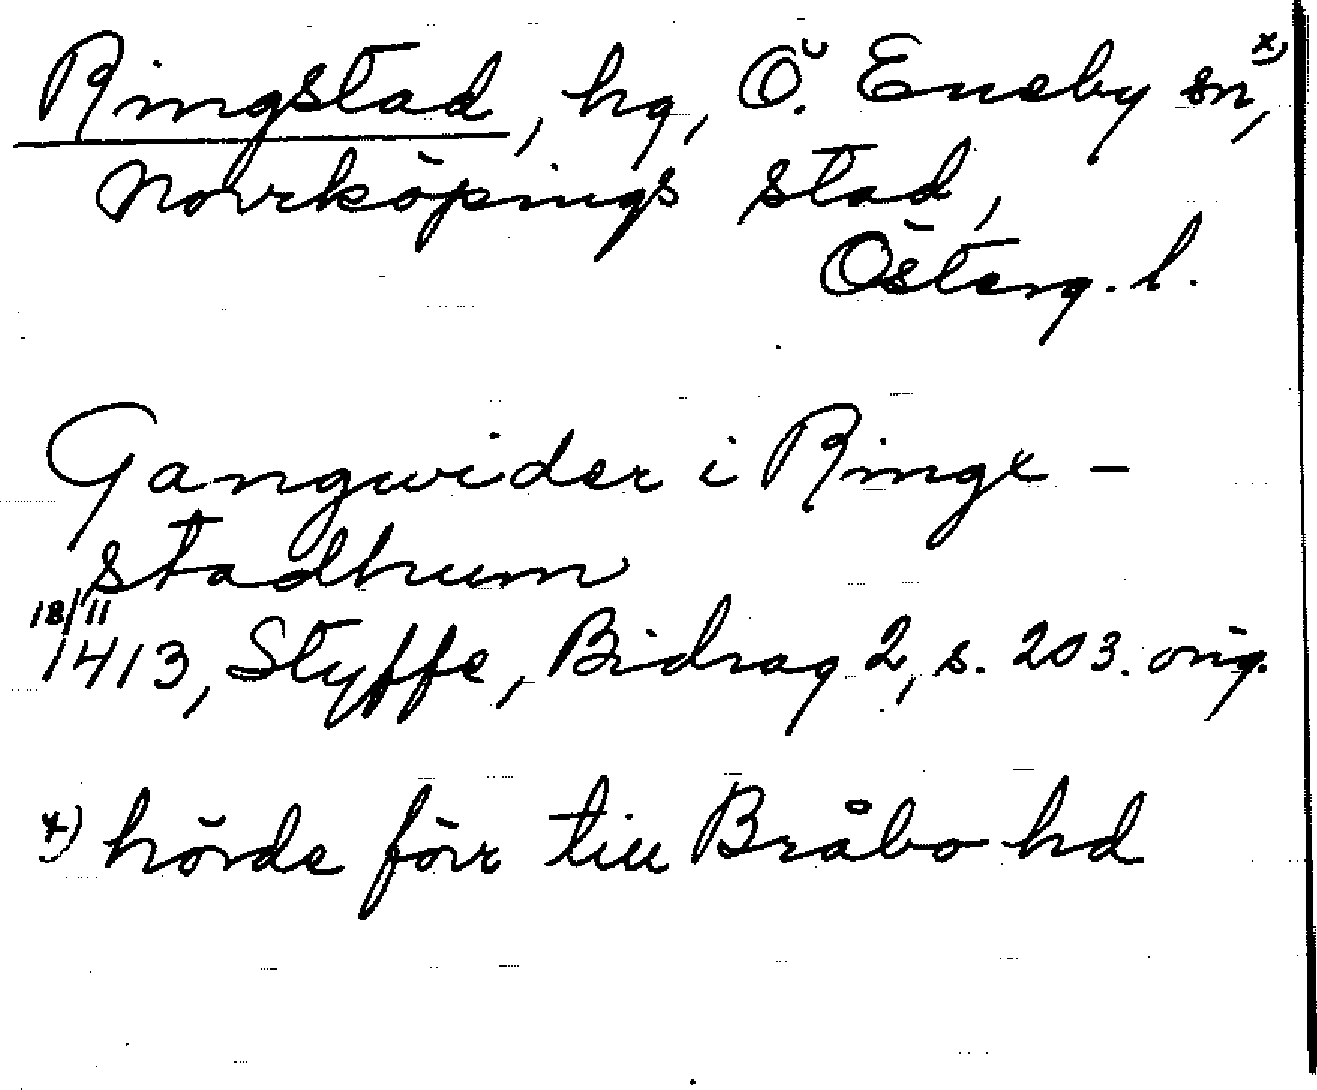 Ringstad, hg, Ö. Eneby sn, x)
Norrköpings stad,
Österg. l.
Gangwider i Ringx-
stadhum
18/11
1413, Styffe, Bidrag 2, s. 203. orig.
x) hörde förr till Bråbo hd